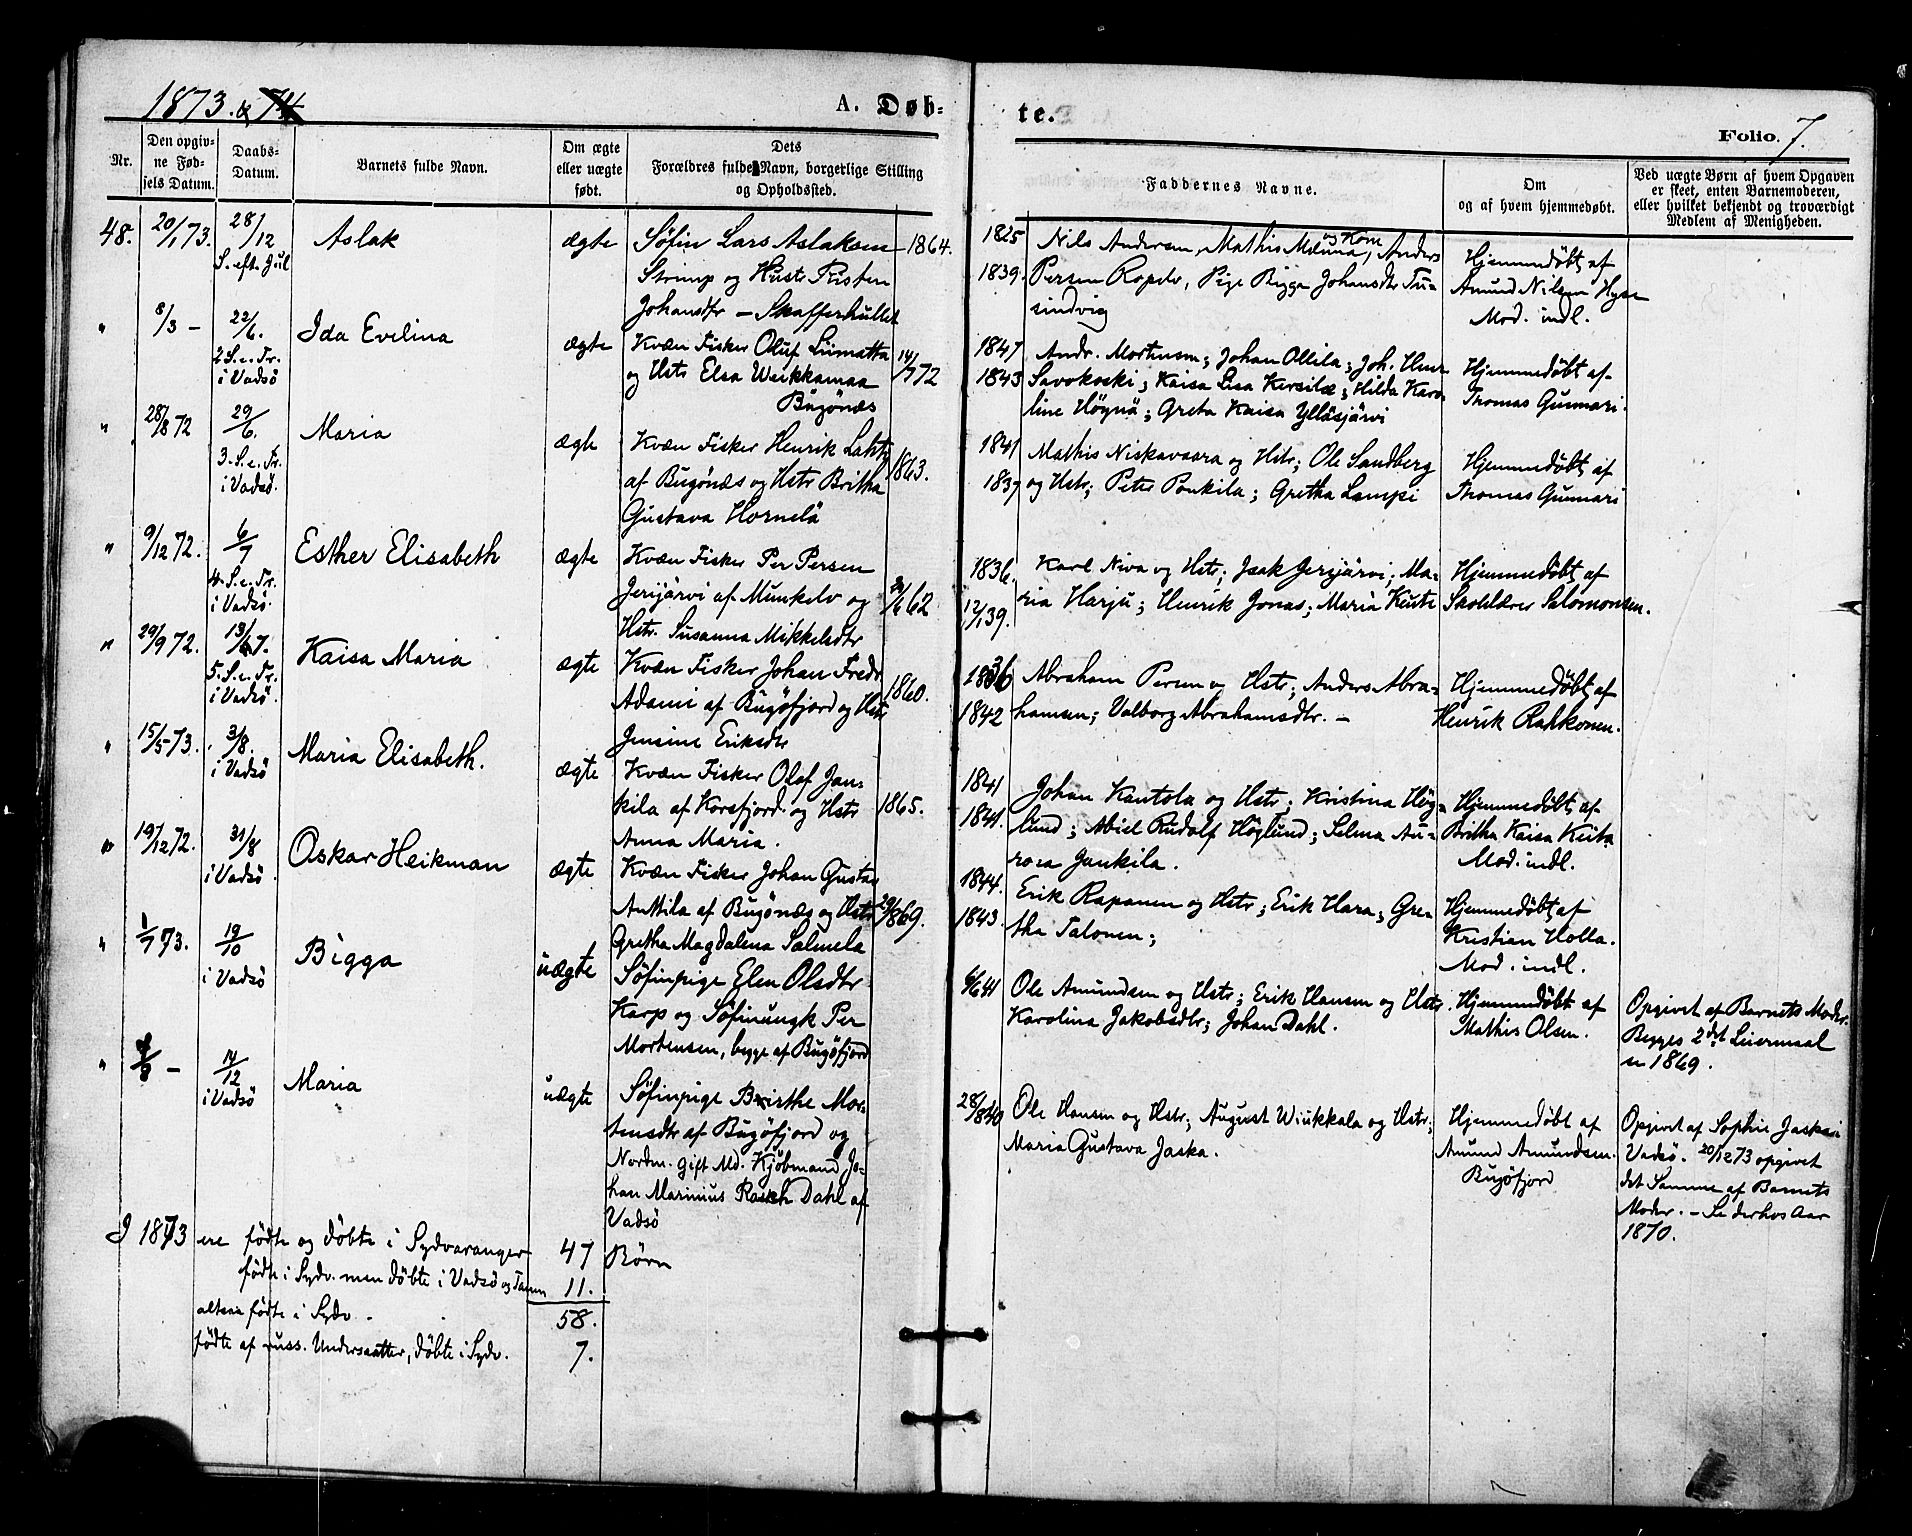 1873. & 74
A. Døb-
te.
Folio. 7.
Nr.
Den opgiv-
ne Fød-
sels Datum.
Daabs-
Datum.
Barnets fulde Navn.
Om ægte
eller uægte
født.
Dets
Forældres fulde Navn, borgerlige Stilling
og Opholdssted.
Faddernes Navne.
Om
og af hvem hjemmedøbt.
Ved uægte Børn af hvem Opgaven
er skeet, enten Barnemoderen,
eller hvilket bekjendt og troværdigt
Medlem af Menigheden.
48. 20/1 73. 28/12 Aslak ægte Søfin Lars Aslaksen 1864.
S. eft. Jul
Strump og Hustr Kristen
Johansdtr — Skafferhullet
1825 Nils Andersen, Mathis Menna og Kone, Anders
1839. Persen Ropelv, Pige Bigga Johansdtr Tu-
sindvig
Hjemmedøbt af
Amund Nilsen
Mod. indl.
" 8/3 – 22/6. Ida Evelina ægte Kvæn Fisker Oluf Liimatta 14/7 72
2 S. e. Tr.
i Vadsö
og Hstr Elsa Weikkamaa
Bugönæs
1847 Andr. Mortensen; Johan Ollila; Joh. Henr
1843 Savokoski; Kaisa Lisa Kersilæ; Hilda Karo-
line Högnä; Greta Kaisa Ylläsjärvi
Hjemmedøbt af
Thomas Gunnari.
" 28/8 72 29/6. Maria ægte Kvæn Fisker Henrik Lahti 1863.
3. S. e. Tr.
i Vadsö.
af Bugönæs og Hstr Britha
Gustava Hornelä
1841 Mathis Niskavaara og Hstr; Ole Sandberg
1837 og Hstr; Peter Poukila; Gretha Lampi
Hjemmedøbt af
Thomas Gunnari
" 9/12 72. 6/7 Esther Elisabeth ægte Kvæn Fisker Per Persen
4. S. e. Tr.
i Vadsö.
Jerijärvi af Munkelv og
Hstr. Susanna Mikkelsdtr
1836. Karl Niva og Hstr; Isak Jerijärvi; Ma-
12/1 39. ria Harju; Henrik Jonas; Maria Keiste
Hjemmedøbt af
Skolelærer Salomonsen.
" 29/9 72. 13/7. Kaisa Maria ægte Kvæn Fisker Johan Fredr 1860.
5. S. e. Tr.
i Vadsö.
Adami af Bugöfjord og Hstr
Jensine Eriksdtr
1836 Abraham Persen og Hstr; Anders Abra-
1842 hamsen; Valborg Abrahamsdtr. –
Hjemmedøbt af
Henrik Rahkonen.
" 15/5 73. 3/8. Maria Elisabeth. ægte Kvæn Fisker Olof Jan-
i Vadsö
kila af Korsfjord og Hstr 1865.
Anna Maria.
1841 Johan Kantola og Hstr; Kristina Hög-
1841. lund; Abiel Rudolf Höglund; Selma Au-
rora Jankila.
Hjemmedøbt af
Britha Kaisa Keita
Mod. indl.
" 19/12 72. 31/8 Oskar Heikman ægte Kvæn Fisker Johan Gustav
i Vadsö
Anttila af Bugönæs og Hstr 1869.
Gretha Magdalena Salmela
1844. Erik Rapanen og Hstr; Erik Hara; Gre-
1843. tha Talonen;
Hjemmedøbt af
Kristian Holla.
Mod. indl.
" 1/7 73. 19/10 Bigga uægte Søfinpige Elen Olsdtr
i Vadsö
Karp og Söfinungk Per
Mortensen, begge af Bugöfjord
6/6 41 Ole Amundsen og Hstr; Erik Hansen og Hstr
Karolina Jakobsdtr; Johan Dahl.
Hjemmedøbt af
Mathis Olsen.
Opgivet af Barnets Moder.
Begges 2det Leiermaal
1869.
" – 14/12 Maria uægte Söfinpige Birthe Mor-
i Vadsö
tensdtr af Bugöfjord og
Nordm. gift Md. Kjöbmand Jo-
han Marinius Rasch Dahl af
Vadsö
28/8 40 Ole Hansen og Hstr; August Wiukkala og Hstr;
Maria Gustava Jaska.
Hjemmedøbt af
Amund Amundsen.
Bugöfjord
Opgivet af Sophie Jaska i
Vadsö. 20/12 73 opgivet
det Samme af Barnets
Moder. – Se derhos Aar
1870.
I 1873 ere födte og döbte i Sydvaranger 47 Börn
födte i Sydv. men döbte i Vadsö og Tanen 11.
altsaa födte i Sydv. 58.
födte af russ. Undersaatter, döbte i Sydv. 7.